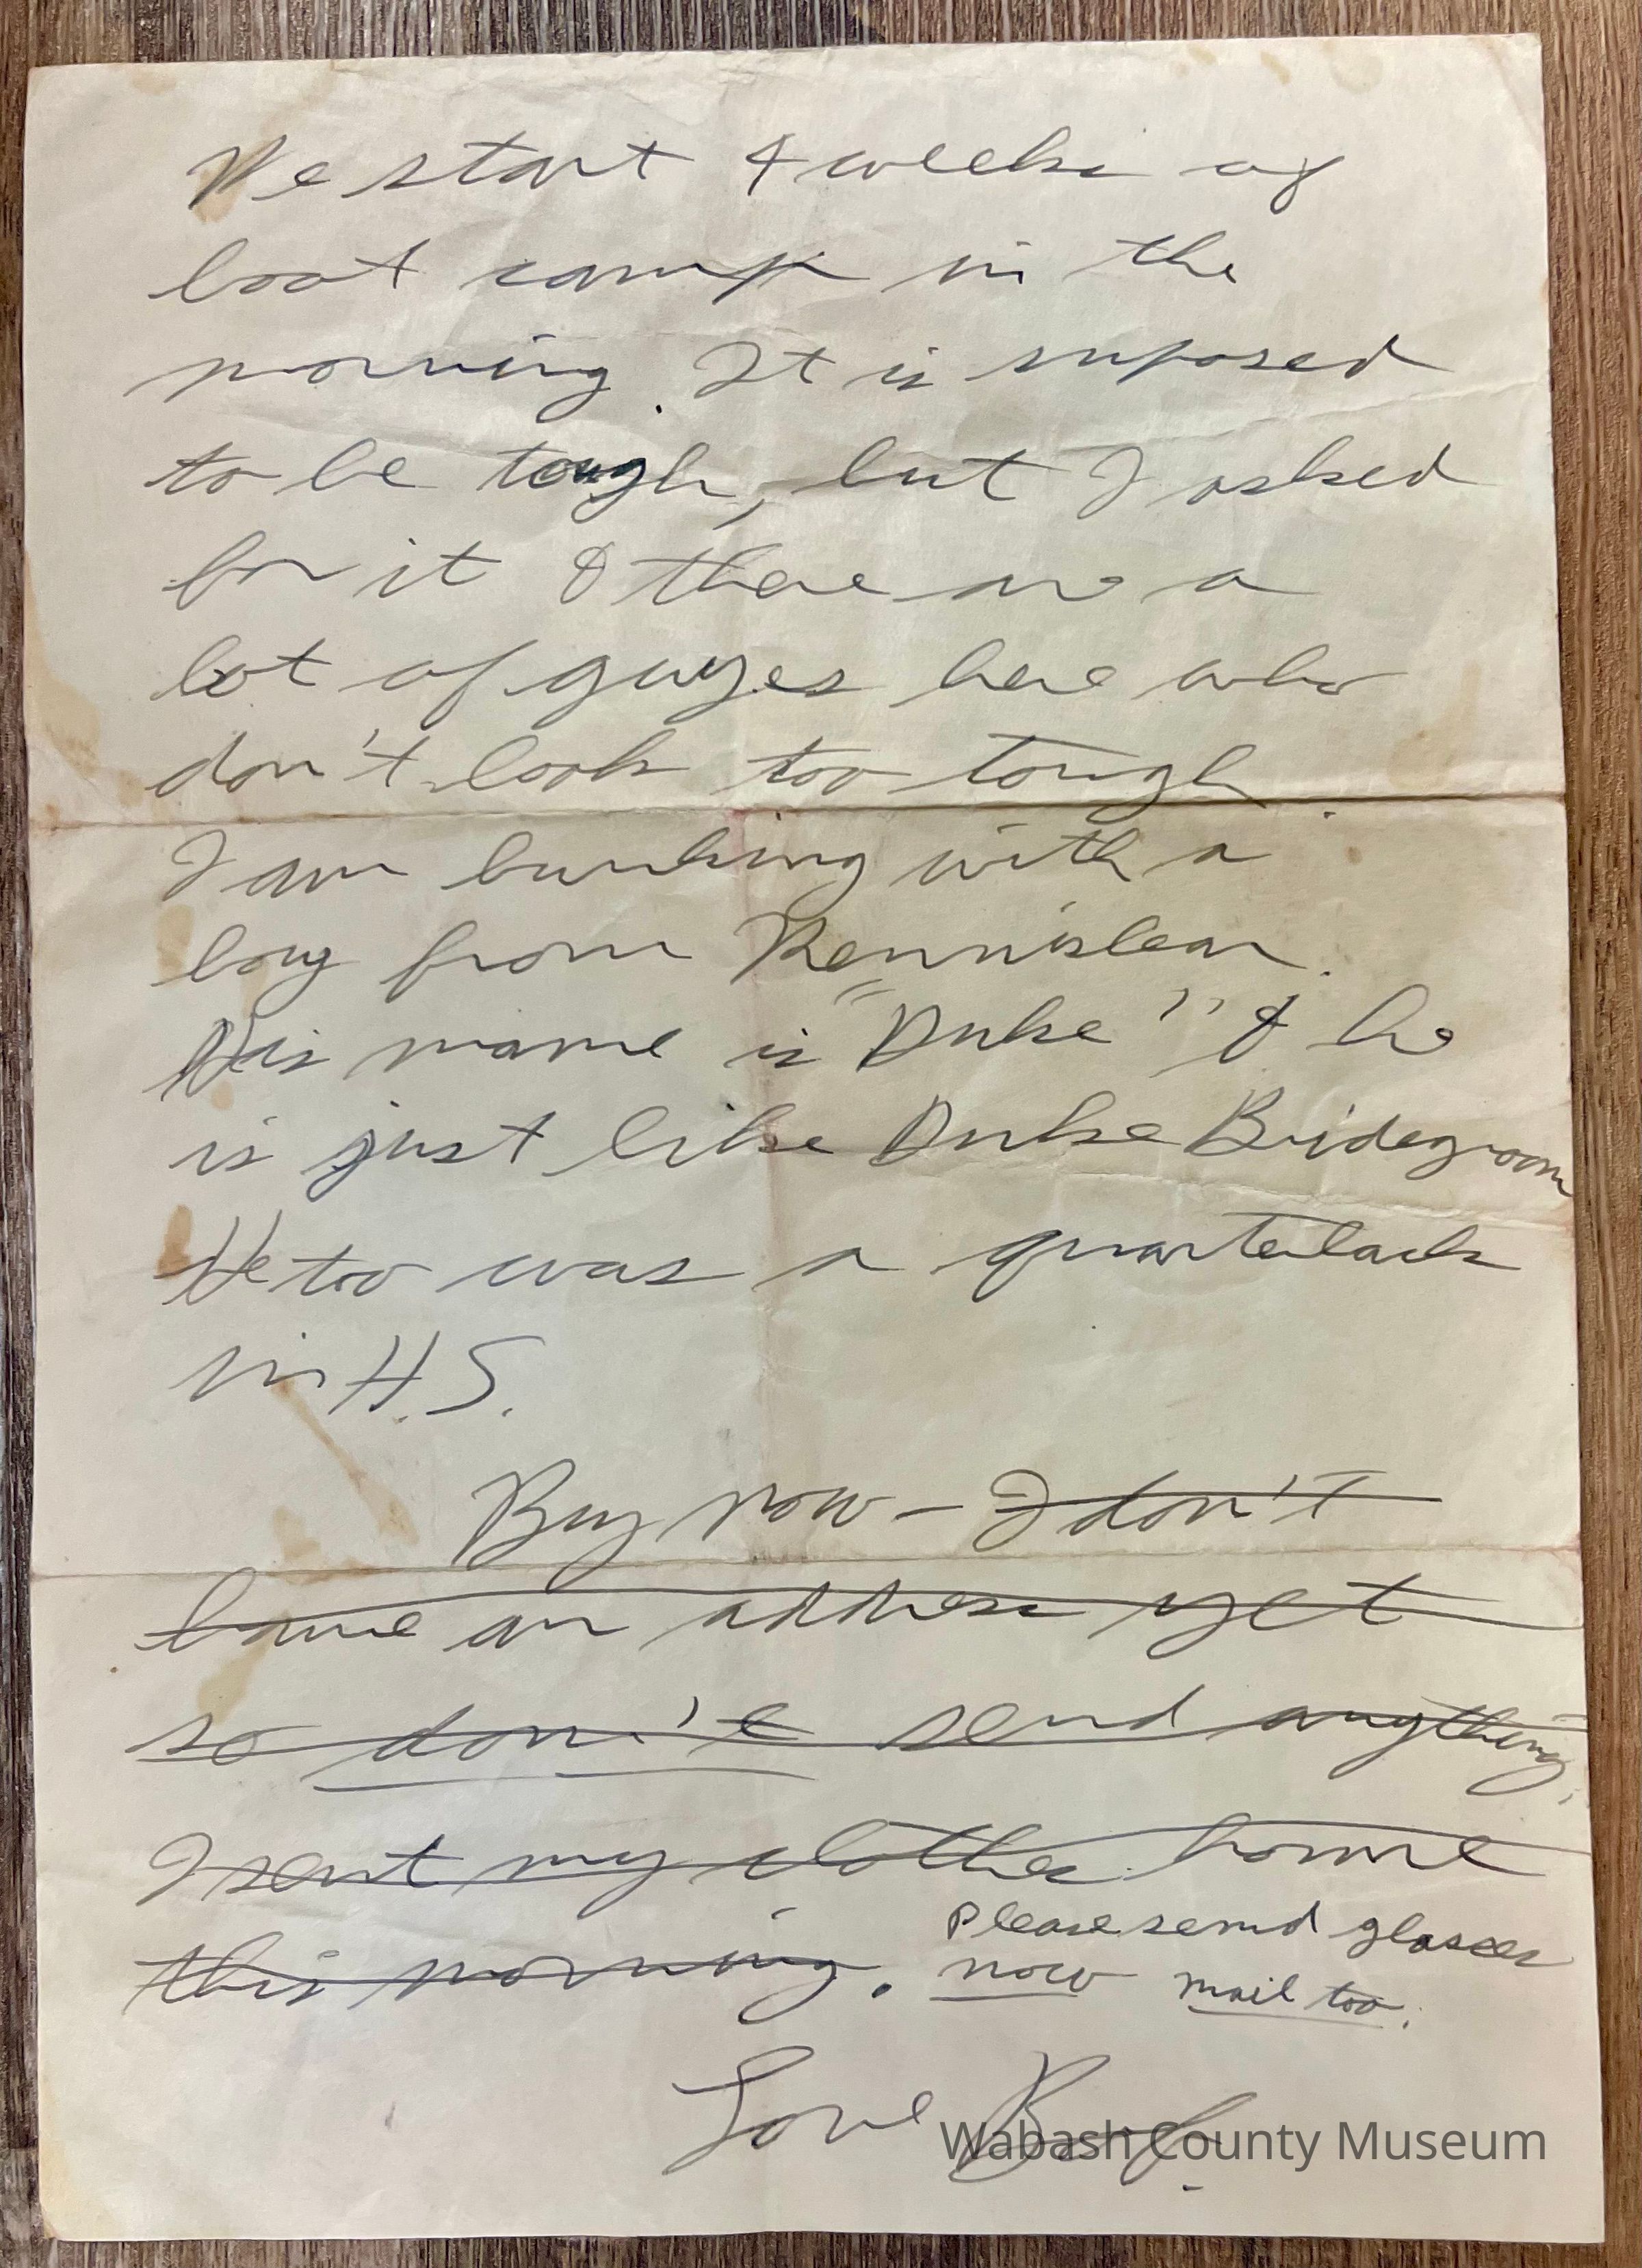 We start 4 weeks of
boot camp in the
morning. It is suposed
to be tough, but I asked
for it & there are a
lot of guyes here who
don't look too tough.
I am bunking with a
boy from Rennislear.
His name is "Duke" & he
is just like Duke Bridegroom
He too was a quarteback
in H.S.
Buy now - I don't
have an address yet
so don't send anything,
I sent my clothes home
this morning. Please send glasses
now mail too.
Love
Wabash County Museum